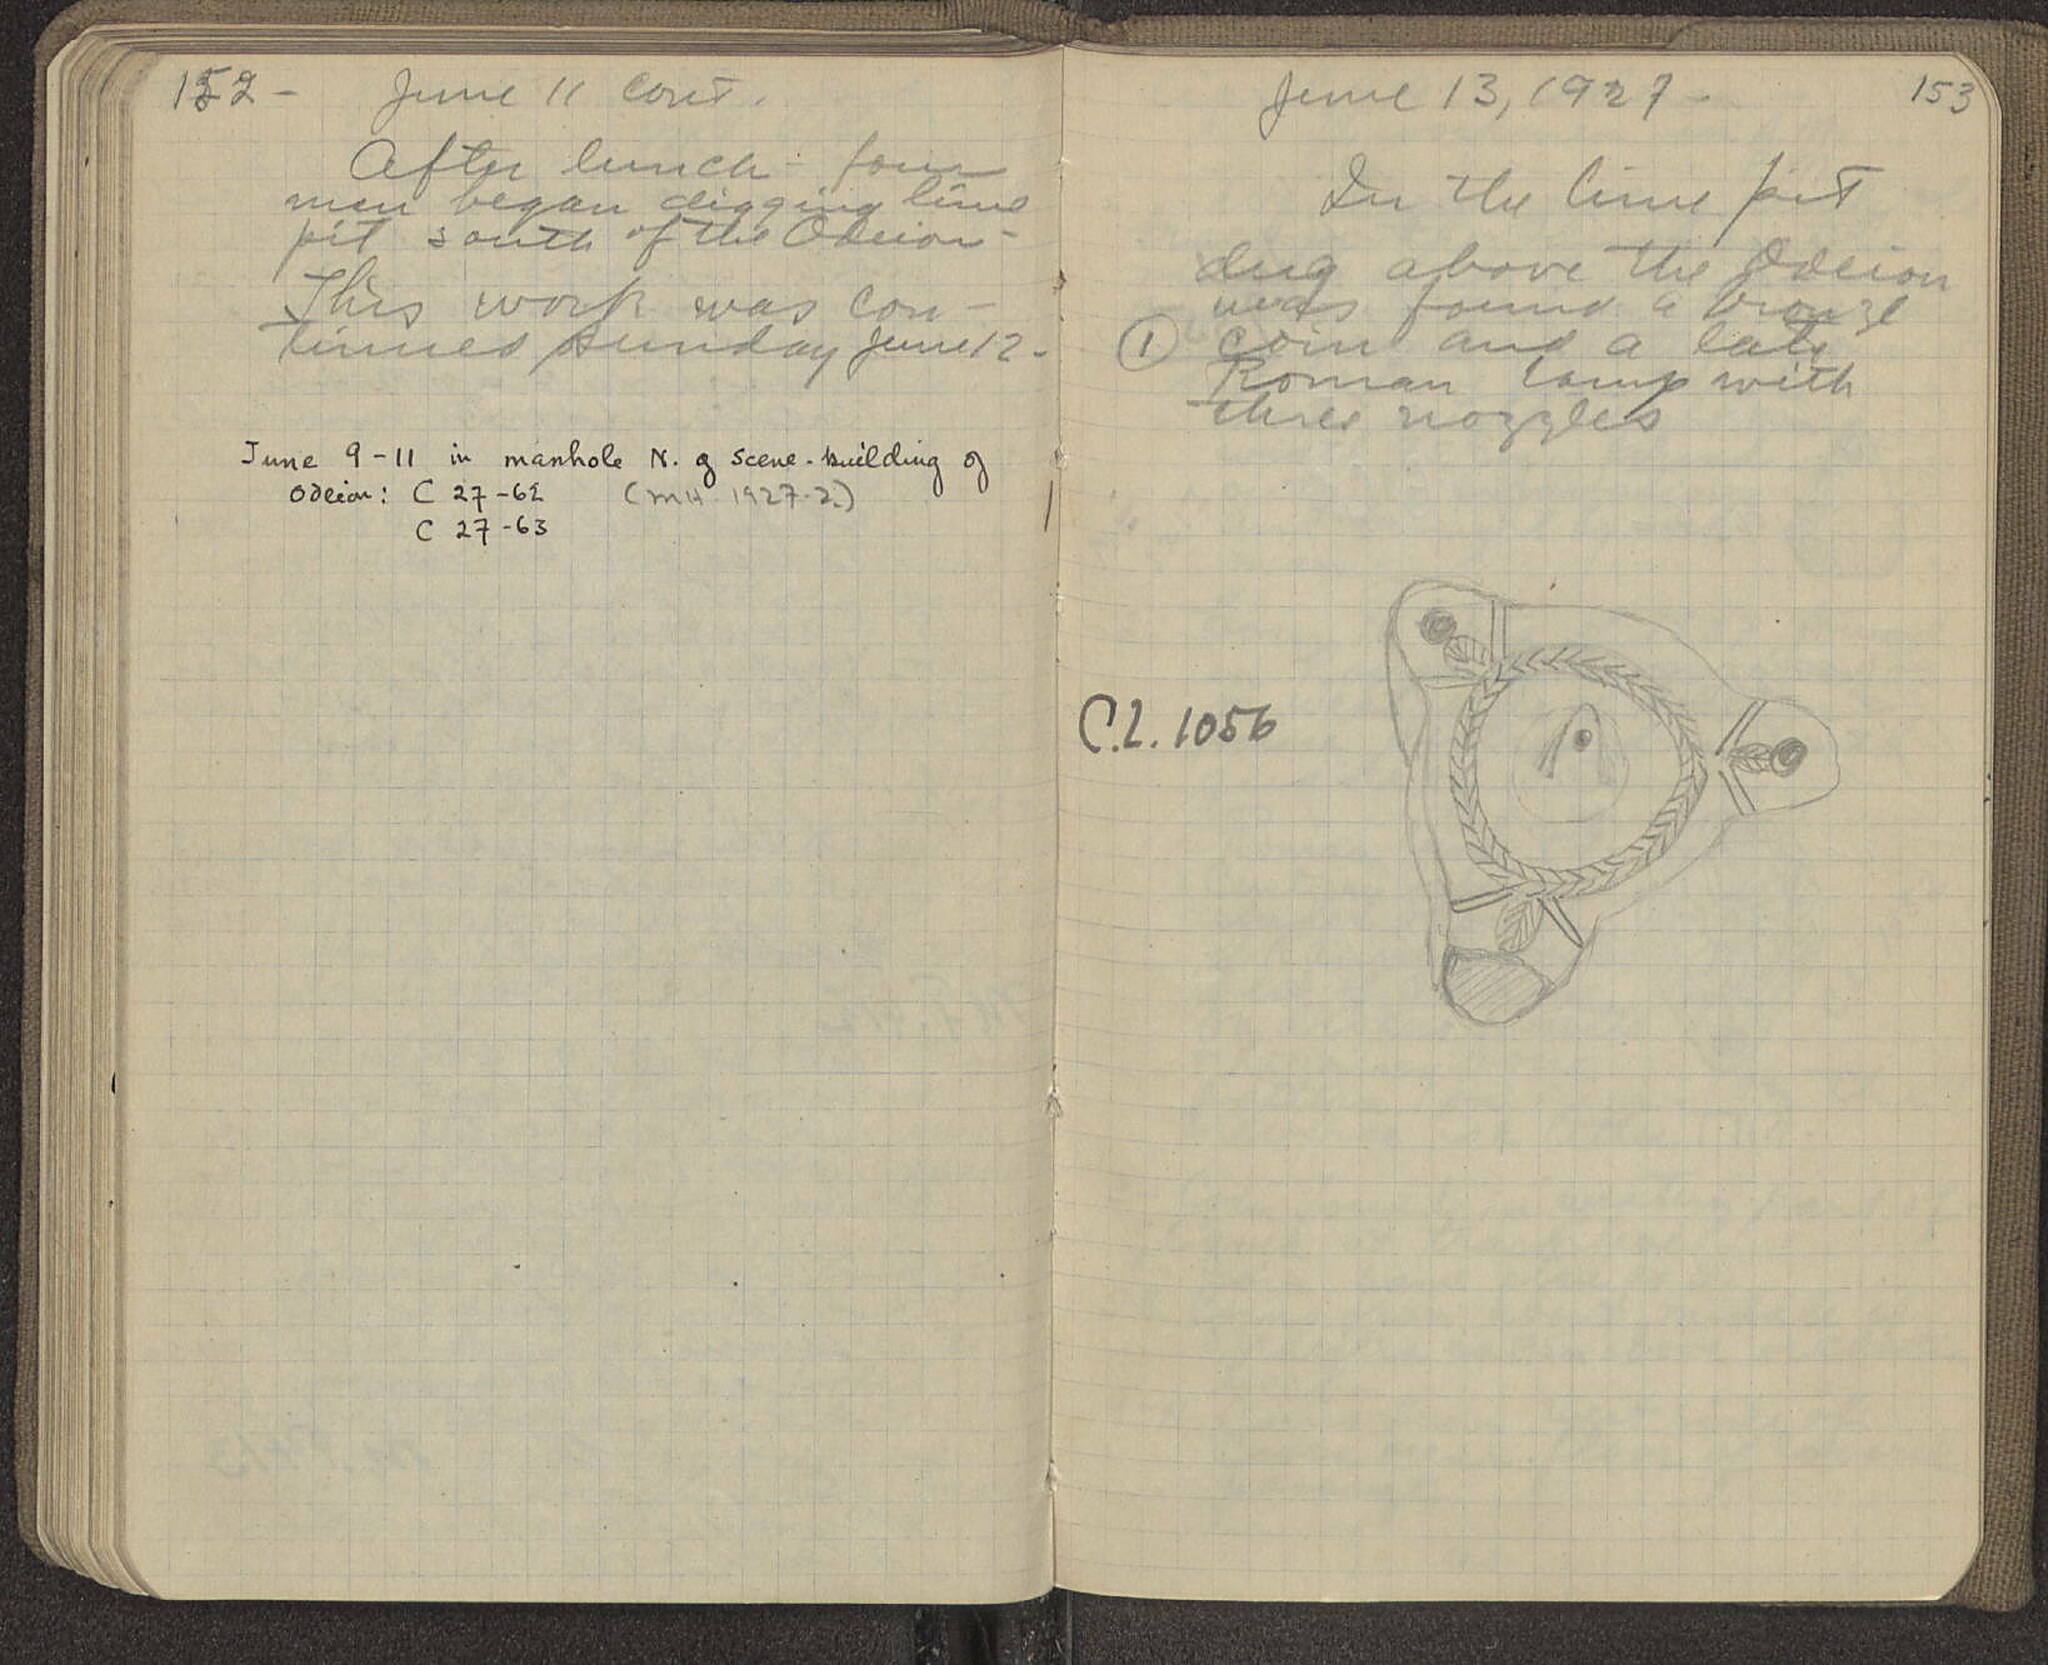 152 - June 11 cont.
After lunch - four
men began digging lime
pit south of the Odeion -
This work was con-
tinued Sunday June 12 -
June 9-11 in manhole N. of scene-building of
Odeion: C 27-62 (MH 1927-2)
C 27-63
June 13, 1927 - 153
In the lime pit
dug above the Odeion
was found a bronze
① coin and a late
Roman lamp with
three nozzles
C.L. 1056